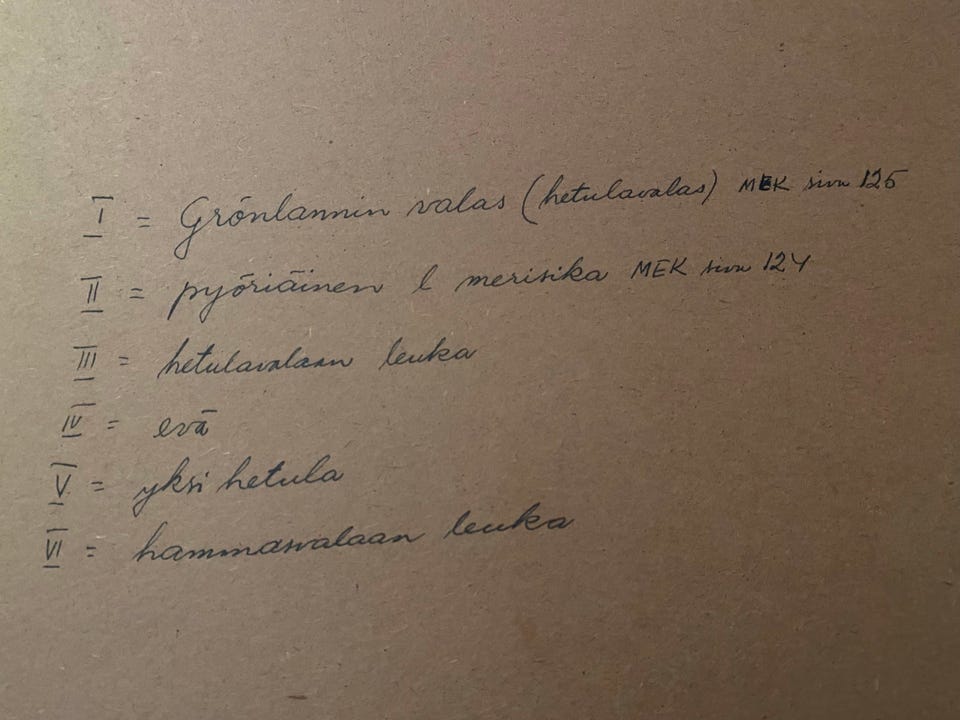 I = Grönlannin valas (hetulavalas) MEK sivu 125
II = pyöriäinen l merisika MEK sivu 124
III = hetulavalaan leuka
IV = evä
V = yksi hetula
VI = hammasvalaan leuka